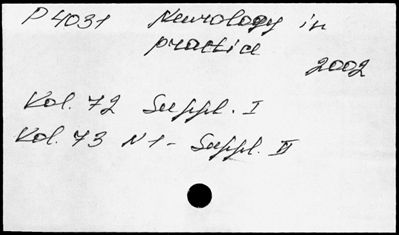 P4031 Neurology in
practice
2002
Vol. 72 Suppl. I
Vol. 73 N1- Suppl. II